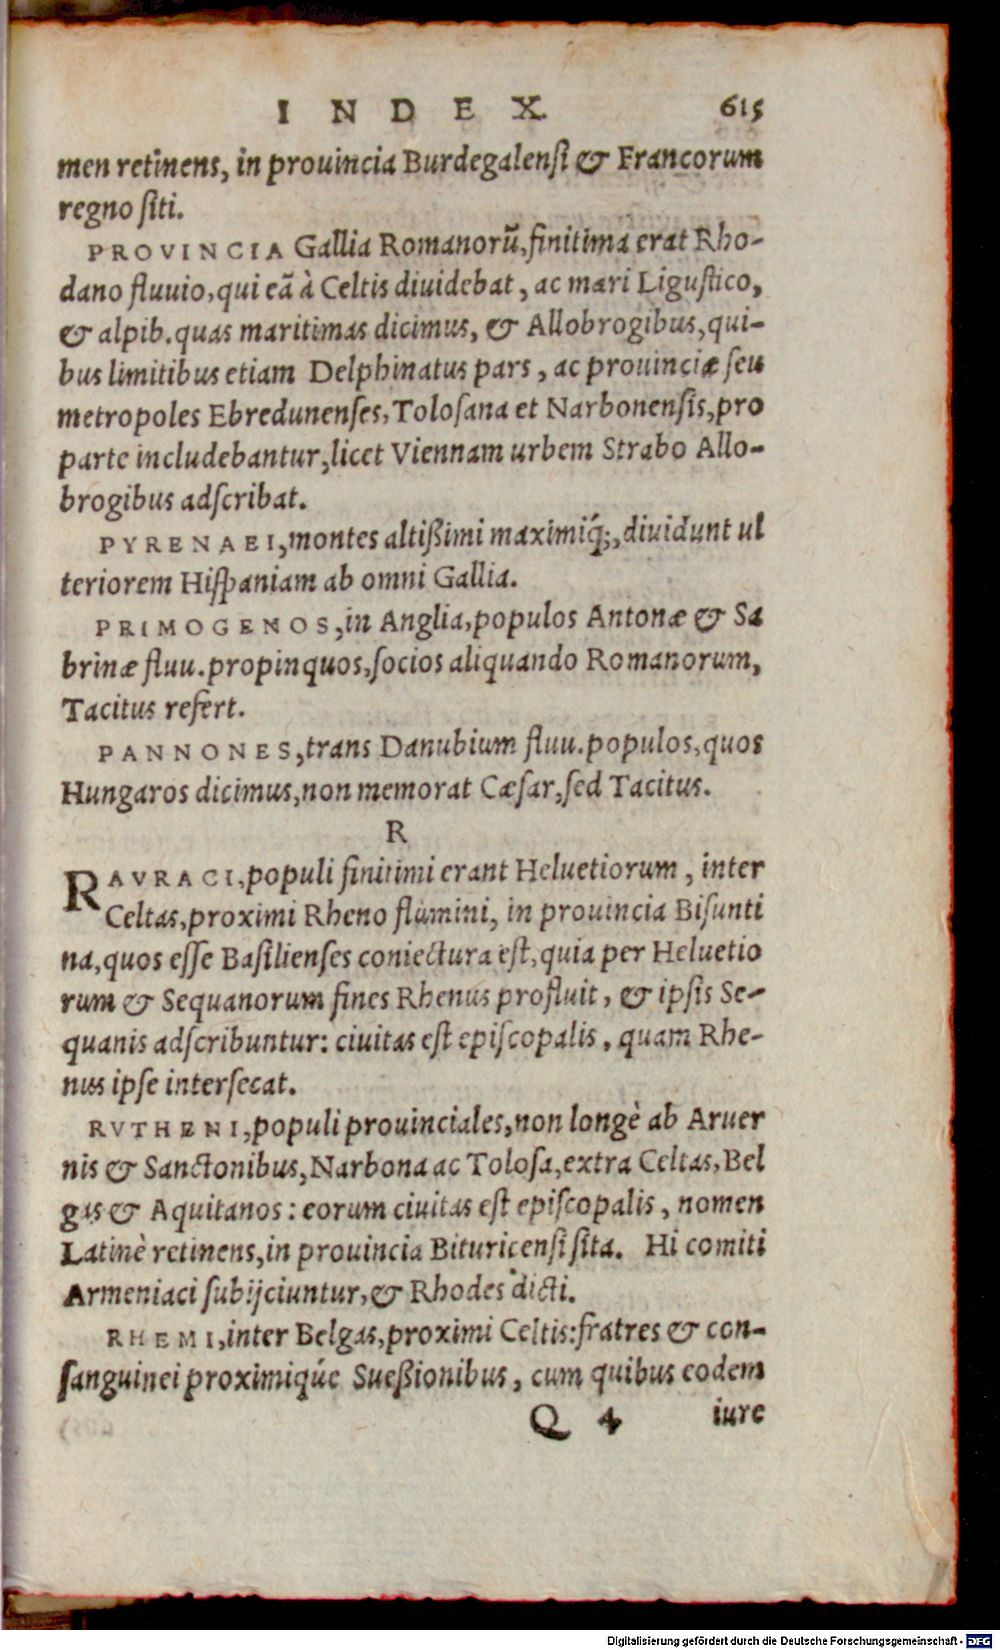 INDEX 615
men retinens, in prouincia Burdegalensi & Francorum
regno siti.
PROVINCIA Gallia Romanorũ, finitima erat Rho-
dano fluuio, qui eã à Celtis diuidebat, ac mari Ligustico,
& alpib. quas maritimas dicimus, & Allobrogibus, qui-
bus limitibus etiam Delphinatus pars, ac prouinciæ seu
metropoles Ebredunenses, Tolosana et Narbonensis, pro
parte includebantur, licet Viennam urbem Strabo Allo-
brogibus adscribat.
PYRENAEI, montes altißimi maximiq́;, diuidunt ul
teriorem Hispaniam ab omni Gallia.
PRIMOGENOS, in Anglia, populos Antonæ & Sa
brinæ fluu. propinquos, socios aliquando Romanorum,
Tacitus refert.
PANNONES, trans Danubium fluu. populos, quos
Hungaros dicimus, non memorat Cæsar, sed Tacitus.
R
RAVRACI, populi finitimi erant Heluetiorum, inter
Celtas, proximi Rheno flumini, in prouincia Bisunti
na, quos esse Basilienses coniectura est, quia per Heluetio
rum & Sequanorum fines Rhenus profluit, & ipsis Se-
quanis adscribuntur: ciuitas est episcopalis, quam Rhe-
nus ipse intersecat.
RVTHENI, populi prouinciales, non longè ab Aruer
nis & Sanctonibus, Narbona ac Tolosa, extra Celtas, Bel
gas & Aquitanos: eorum ciuitas est episcopalis, nomen
Latinè retinens, in prouincia Bituricensi sita. Hi comiti
Armeniaci subijciuntur, & Rhodes dicti.
RHEMI, inter Belgas, proximi Celtis: fratres & con-
sanguinei proximiq́ue Sueßionibus, cum quibus eodem
Q 4 iure
Digitalisierung gefördert durch die Deutsche Forschungsgemeinschaft - DFG